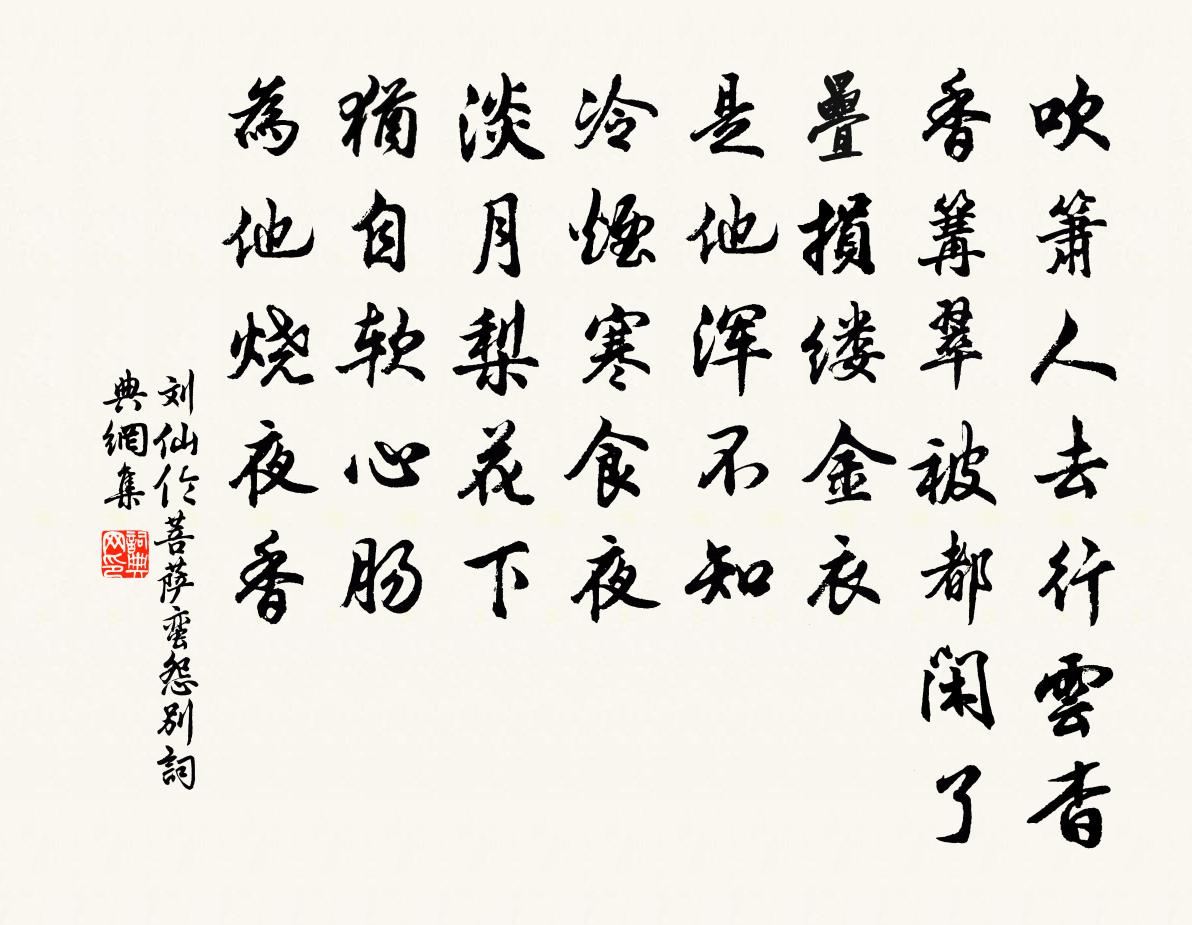 吹簫人去行雲杳
香篝翠被都閑了
疊損缕金衣
是他浑不知
冷煙寒食夜
淡月梨花下
猶自软心肠
為他烧夜香
刘仙伦菩萨蛮怨别詞
典網集
詞典网印